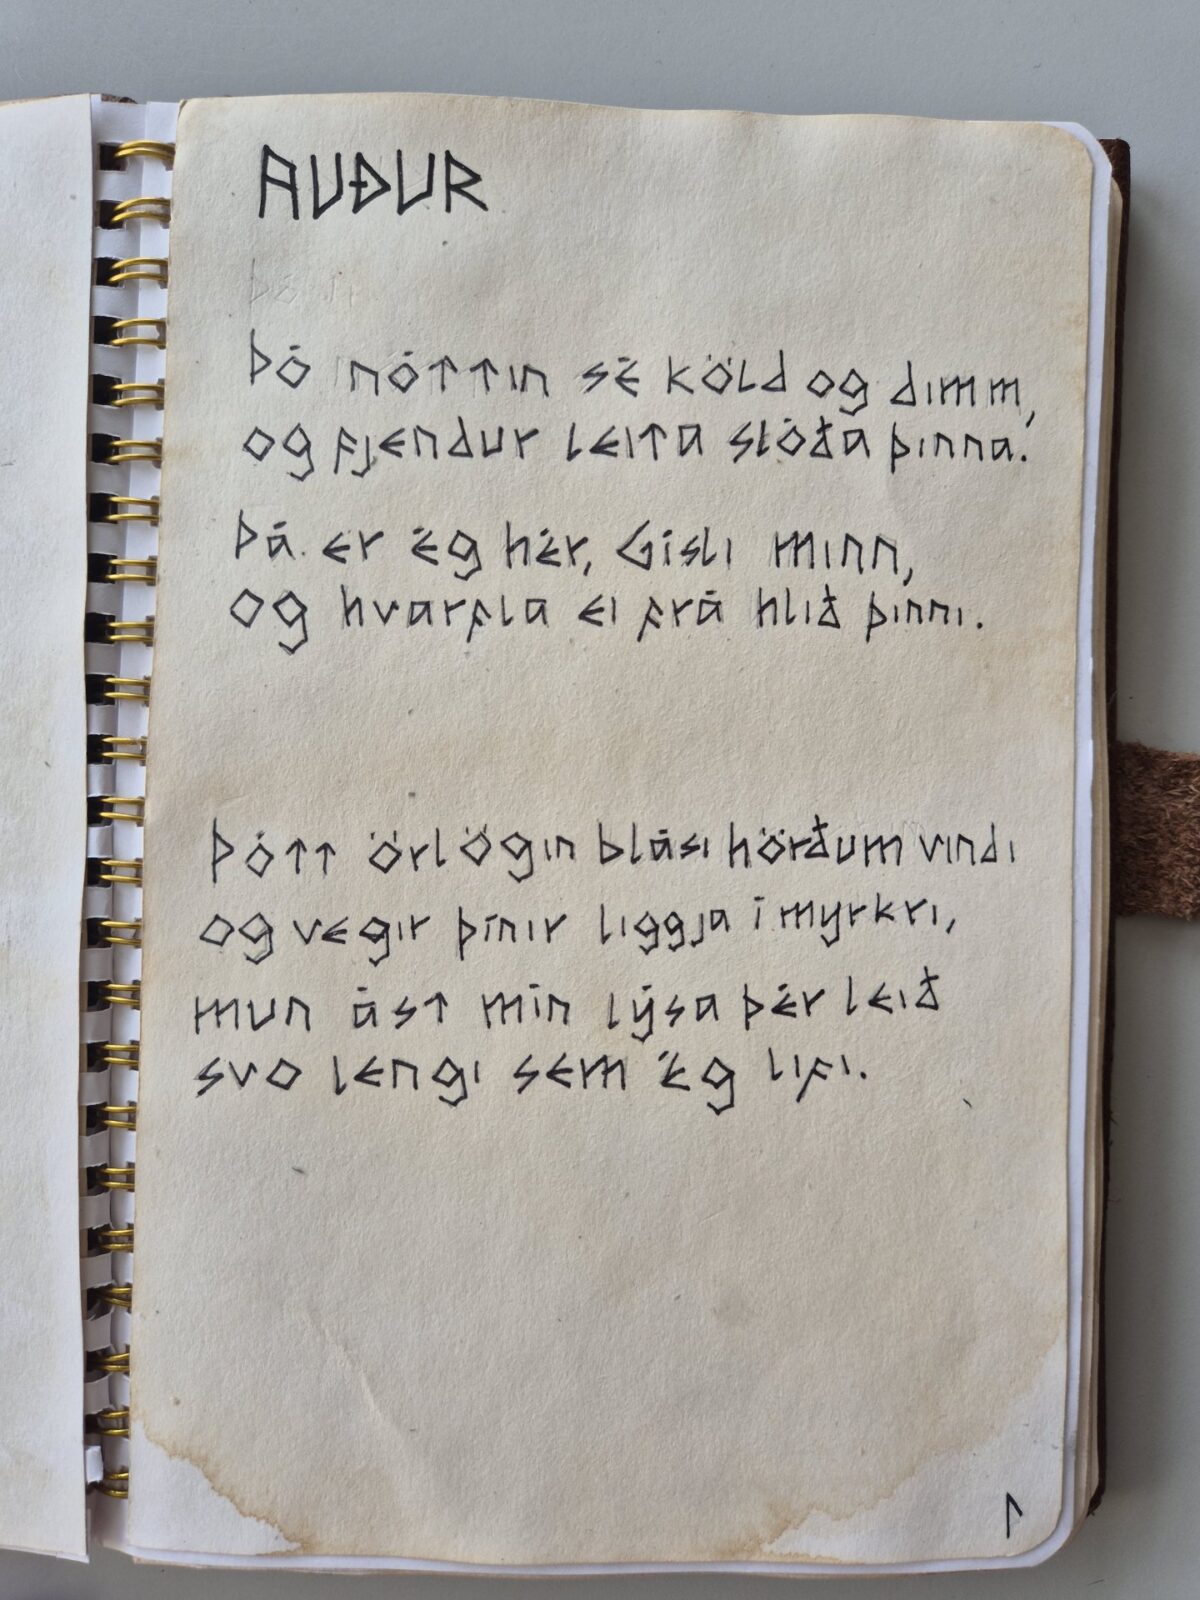 AUÐUR
Þó nóttin sé köld og dimm,
og fjendur leita slóða þinna.
Þá er ég hér, Gísli minn,
og hvarfla ei frá hlið þinni.
Þótt örlögin blási hörðum vindi
og vegir þínir liggja í myrkri,
mun ást mín lýsa þér leið
svo lengi sem ég lifi.
ᛚ